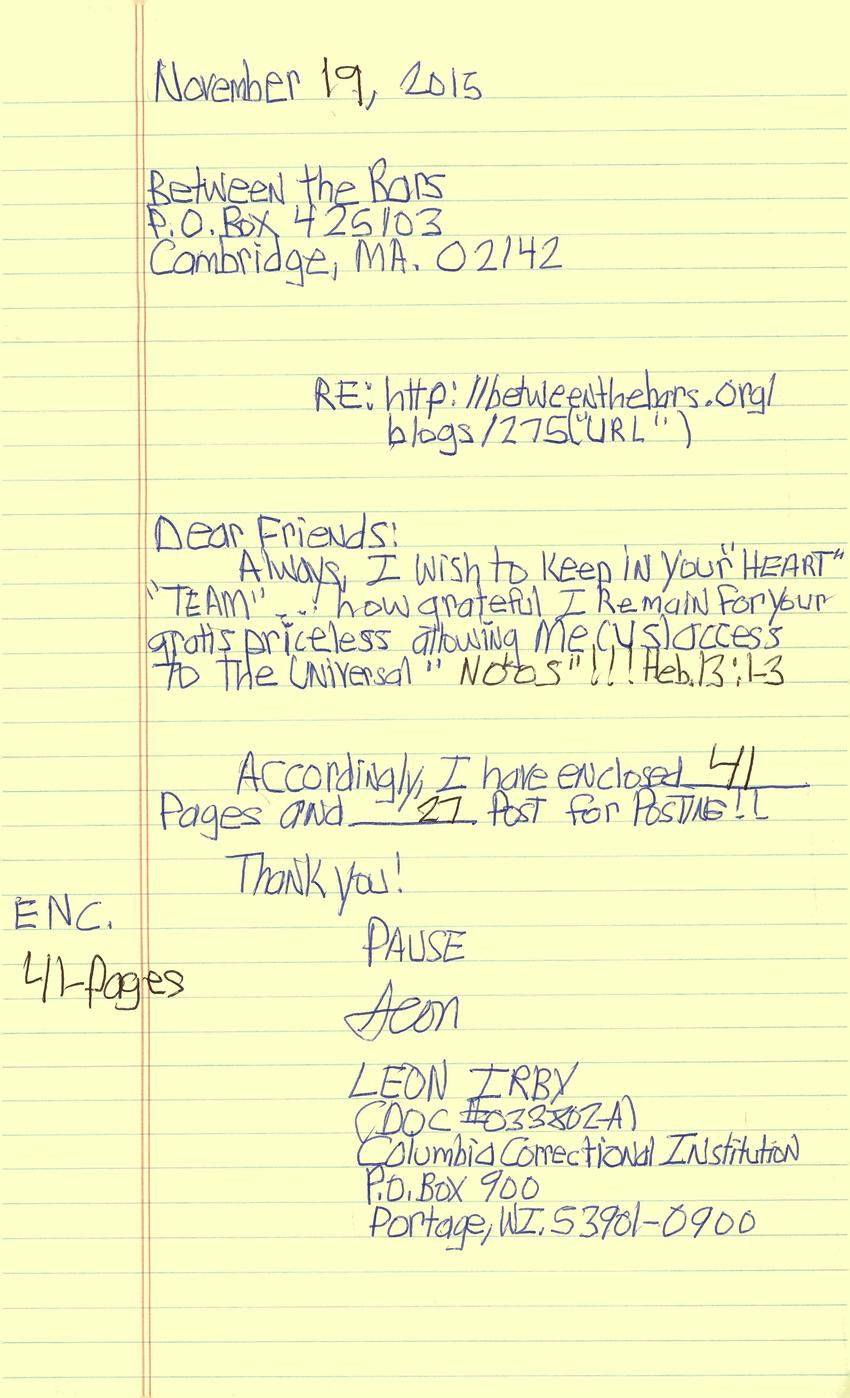 November 19, 2015
Between the Bars
P.O. Box 425103
Cambridge, MA. 02142
RE: http://betweenthebars.org/
blogs/275("URL")
Dear Friends:
Always, I wish to keep in your "HEART"
"TEAM" ...! how grateful I Remain for your
gratis priceless allowing Me (us) access
to the Universal " !!! Heb. 13:1-3
Accordingly, I have enclosed 41
Pages and 27 Post for POSTING!!
Thank you!
ENC.
PAUSE
41-Pages
Leon
LEON IRBY
(DOC #033802-A)
Columbia Correctional Institution
P.O. Box 900
Portage, WI. 53901-0900